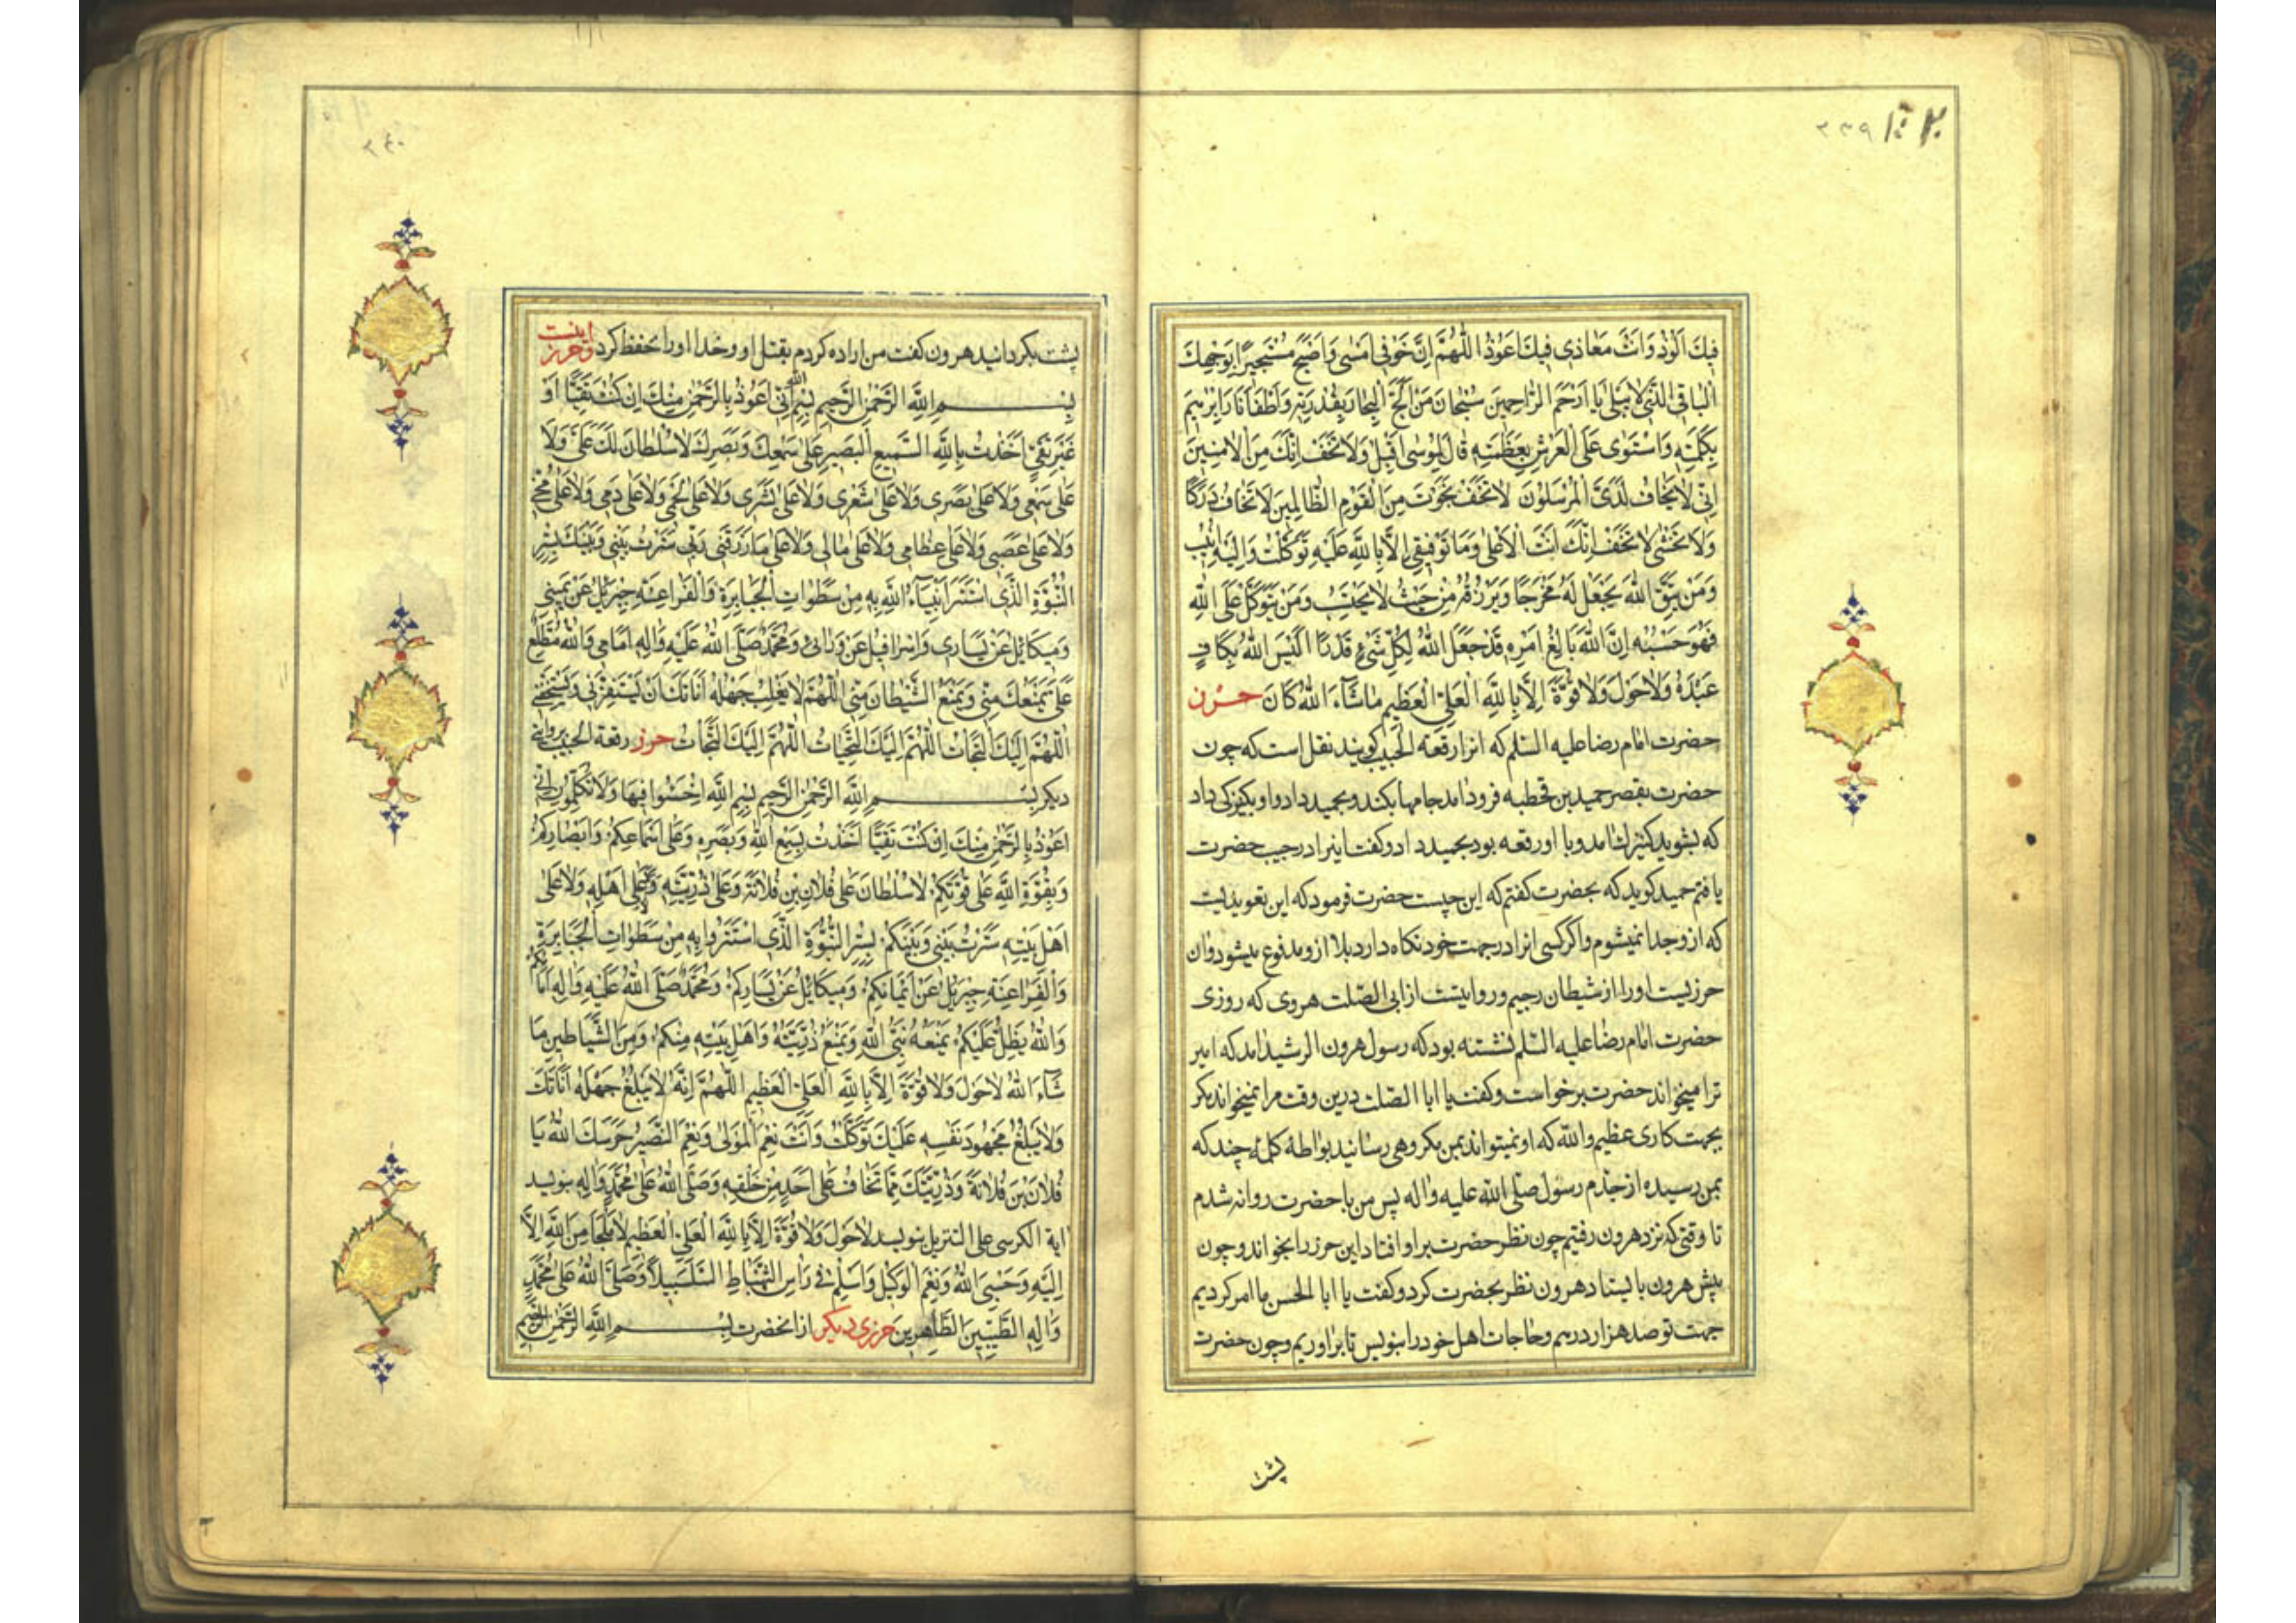 ۳۳۹
فِيكَ اَلُوذُ وَاَنْتَ مَعَاذِي فَبِكَ اَعُوذُ اللّٰهُمَّ اِنَّ خَوْفِي اَمْسٰى وَاَصْبَحَ مُسْتَجِيرًا بِوَجْهِكَ
الْبَاقِي الَّذِي لَا يَبْلٰى يَا اَرْحَمَ الرَّاحِمِينَ سُبْحَانَ مَنْ اَلَجَّ الْبِحَارَ بِقُدْرَتِهِ وَاَطْفَأَ نَارَ اِبْرٰهِيمَ
بِكَلِمَتِهِ وَاسْتَوٰى عَلَى الْعَرْشِ بِعَظَمَتِهِ قَالَ لِمُوسٰى اَقْبِلْ وَلَا تَخَفْ اِنَّكَ مِنَ الْاٰمِنِينَ
اِنِّي لَا يَخَافُ لَدَيَّ الْمُرْسَلُونَ لَا تَخَفْ نَجَوْتَ مِنَ الْقَوْمِ الظَّالِمِينَ لَا تَخَافُ دَرَكًا
وَلَا تَخْشٰى لَا تَخَفْ اِنَّكَ اَنْتَ الْاَعْلٰى وَمَا تَوْفِيقِي اِلَّا بِاللّٰهِ عَلَيْهِ تَوَكَّلْتُ وَاِلَيْهِ اُنِيبُ
وَمَنْ يَتَّقِ اللّٰهَ يَجْعَلْ لَهُ مَخْرَجًا وَيَرْزُقْهُ مِنْ حَيْثُ لَا يَحْتَسِبُ وَمَنْ يَتَوَكَّلْ عَلَى اللّٰهِ
فَهُوَ حَسْبُهُ اِنَّ اللّٰهَ بَالِغُ اَمْرِهِ قَدْ جَعَلَ اللّٰهُ لِكُلِّ شَيْءٍ قَدْرًا اَلَيْسَ اللّٰهُ بِكَافٍ
عَبْدَهُ وَلَا حَوْلَ وَلَا قُوَّةَ اِلَّا بِاللّٰهِ الْعَلِيِّ الْعَظِيمِ مَا شَآءَ اللّٰهُ كَانَ حرز
حضرت امام رضا عليه السّلم كه انرا رقعة الجيب كويند نقل است كه چون
حضرت بقصر حميد بن قحطبه فرود امد جامها بكند و بحميد داد و او بكنيزكى داد
كه بشويد كنيزك امد و با او رقعه بود بحميد داد و كفت اينرا در جيب حضرت
يافتم حميد كويد كه بحضرت كفتم كه اين چيست حضرت فرمود كه اين تعويذيست
كه از و جدا نميشوم و اكر كسى انرا در جهت خود نكاه دارد بلا از و مدفوع ميشود و ان
حرزيست او را از شيطان رجيم و روايتست از ابى الصّلت هروى كه روزى
حضرت امام رضا عليه السّلم نشسته بود كه رسول هرون الرشيد امد كه امير
ترا ميخواند حضرت برخواست و كفت يا ابا الصّلت درين وقت مرا نميخواند مكر
بجهت كارى عظيم و اللّه كه او نميتواند بمن مكروهى رسانيد بواسطهٔ كلمهٔ چند كه
بمن رسيده از جدّم رسول صلّى اللّه عليه و اله پس من با حضرت روانه شدم
تا وقتى كه نزد هرون رفتيم چون نظر حضرت بر او افتاد اين حرز را بخواند و چون
پيش هرون بايستاد هرون نظر بحضرت كرد و كفت يا ابا الحسن ما امر كرديم
جهت تو صد هزار درهم و حاجات اهل خود را بنويس تا براوريم و چون حضرت
پشت
۳۴۰
پشت بكردانيد هرون كفت من اراده كردم بقتل او و خدا او را حفظ كرد و حرز اينست
بِسْمِ اللّٰهِ الرَّحْمٰنِ الرَّحِيمِ بِسْمِ اللّٰهِ اِنِّي اَعُوذُ بِالرَّحْمٰنِ مِنْكَ اِنْ كُنْتَ تَقِيًّا اَوْ
غَيْرَ تَقِيٍّ اَخَذْتُ بِاللّٰهِ السَّمِيعِ الْبَصِيرِ عَلٰى سَمْعِكَ وَبَصَرِكَ لَا سُلْطَانَ لَكَ عَلَيَّ وَلَا
عَلٰى سَمْعِي وَلَا عَلٰى بَصَرِي وَلَا عَلٰى شَعْرِي وَلَا عَلٰى بَشَرِي وَلَا عَلٰى لَحْمِي وَلَا عَلٰى دَمِي وَلَا عَلٰى مُخِّي
وَلَا عَلٰى عَصَبِي وَلَا عَلٰى عِظَامِي وَلَا عَلٰى مَالِي وَلَا عَلٰى مَا رَزَقَنِي رَبِّي سَتَرْتُ بَيْنِي وَبَيْنَكَ بِسِتْرِ
النُّبُوَّةِ الَّذِي اسْتَتَرَ اَنْبِيَآءُ اللّٰهِ بِهِ مِنْ سَطَوَاتِ الْجَبَابِرَةِ وَالْفَرَاعِنَةِ جِبْرَئِيلُ عَنْ يَمِينِي
وَمِيكَائِيلُ عَنْ يَسَارِي وَاِسْرَافِيلُ عَنْ وَرَائِي وَمُحَمَّدٌ صَلَّى اللّٰهُ عَلَيْهِ وَاٰلِهِ اَمَامِي وَاللّٰهُ مُطَّلِعٌ
عَلَيَّ يَمْنَعُكَ مِنِّي وَيَمْنَعُ الشَّيْطَانَ مِنِّي اللّٰهُمَّ لَا يَغْلِبْ جَهْلُهُ اَنَاتَكَ اَنْ يَسْتَفِزَّنِي وَيَسْتَخِفَّنِي
اللّٰهُمَّ اِلَيْكَ الْتَجَأْتُ اللّٰهُمَّ اِلَيْكَ الْتَجَأْتُ اللّٰهُمَّ اِلَيْكَ الْتَجَأْتُ حرز رقعة الجيب بروايتى
ديكر بِسْمِ اللّٰهِ الرَّحْمٰنِ الرَّحِيمِ بِسْمِ اللّٰهِ اخْسَئُوا فِيهَا وَلَا تُكَلِّمُونِ اِنِّي
اَعُوذُ بِالرَّحْمٰنِ مِنْكَ اِنْ كُنْتَ تَقِيًّا اَخَذْتُ بِسَمْعِ اللّٰهِ وَبَصَرِهِ وَعَلٰى اَسْمَاعِكُمْ وَاَبْصَارِكُمْ
وَبِقُوَّةِ اللّٰهِ عَلٰى قُوَّتِكُمْ لَا سُلْطَانَ عَلٰى فُلَانِ بْنِ فُلَانَةَ وَعَلٰى ذُرِّيَّتِهِ وَعَلٰى اَهْلِهِ وَلَا عَلٰى
اَهْلِ بَيْتِهِ سَتَرْتُ بَيْنِي وَبَيْنَكُمْ بِسِتْرِ النُّبُوَّةِ الَّذِي اسْتَتَرُوا بِهِ مِنْ سَطَوَاتِ الْجَبَابِرَةِ
وَالْفَرَاعِنَةِ جِبْرَئِيلُ عَنْ اَيْمَانِكُمْ وَمِيكَائِيلُ عَنْ يَسَارِكُمْ وَمُحَمَّدٌ صَلَّى اللّٰهُ عَلَيْهِ وَاٰلِهِ اَمَامَكُمْ
وَاللّٰهُ يُظِلُّ عَلَيْكُمْ يَمْنَعُهُ نَبِيُّ اللّٰهِ وَيَمْنَعُ ذُرِّيَّتَهُ وَاَهْلَ بَيْتِهِ مِنْكُمْ وَمِنَ الشَّيَاطِينِ مَا
شَآءَ اللّٰهُ لَا حَوْلَ وَلَا قُوَّةَ اِلَّا بِاللّٰهِ الْعَلِيِّ الْعَظِيمِ اللّٰهُمَّ اِنَّهُ لَا يَبْلُغُ جَهْلُهُ اَنَاتَكَ
وَلَا يَبْلُغُ مَجْهُودَ نَفْسِهِ عَلَيْكَ تَوَكَّلْتُ وَاَنْتَ نِعْمَ الْمَوْلٰى وَنِعْمَ النَّصِيرُ حَرَسَكَ اللّٰهُ يَا
فُلَانَ بْنَ فُلَانَةَ وَذُرِّيَّتَكَ مِمَّا تَخَافُ عَلٰى اَحَدٍ مِنْ خَلْقِهِ وَصَلَّى اللّٰهُ عَلٰى مُحَمَّدٍ وَاٰلِهِ بنويسد
اية الكرسى على التنزيل بنويسد لَا حَوْلَ وَلَا قُوَّةَ اِلَّا بِاللّٰهِ الْعَلِيِّ الْعَظِيمِ لَا مَلْجَأَ مِنَ اللّٰهِ اِلَّا
اِلَيْهِ وَحَسْبِيَ اللّٰهُ وَنِعْمَ الْوَكِيلُ وَاَسْلَمَ فِي رَأْسِ الشَّهْبَاطِ السَّلْسَبِيلًا وَصَلَّى اللّٰهُ عَلٰى مُحَمَّدٍ
وَاٰلِهِ الطَّيِّبِينَ الطَّاهِرِينَ حرزى ديكر از انحضرت بِسْمِ اللّٰهِ الرَّحْمٰنِ الرَّحِيمِ